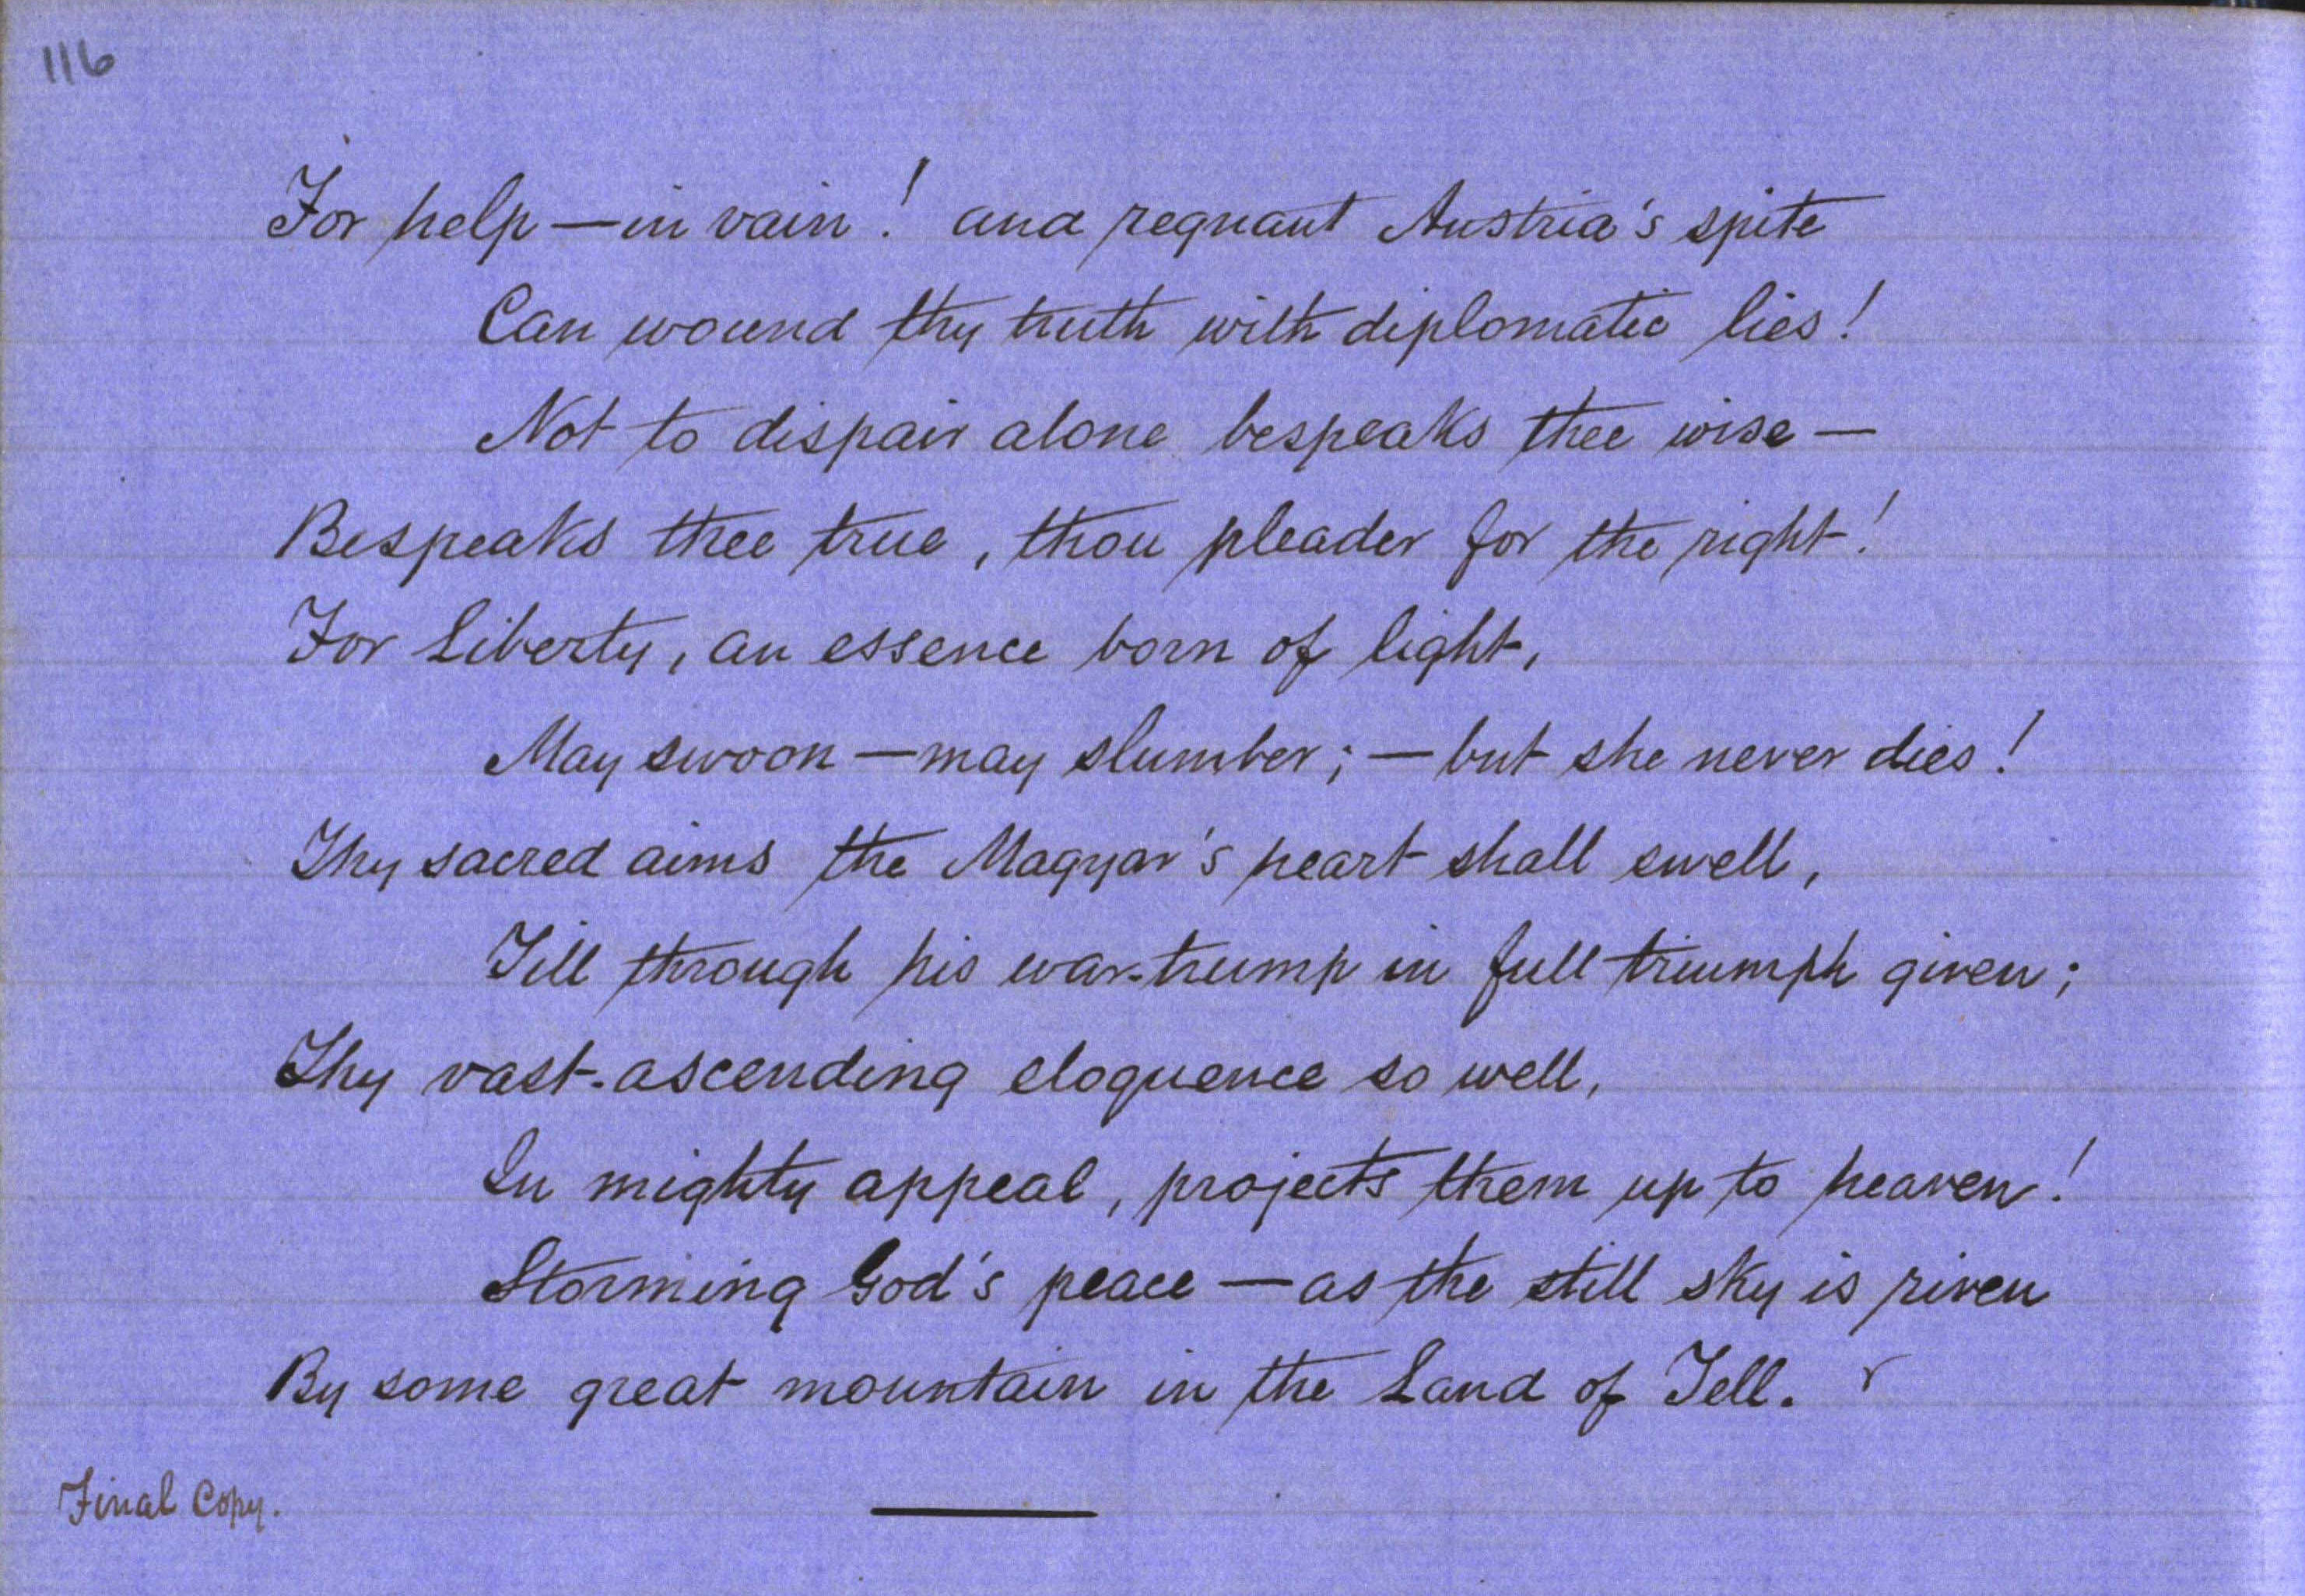 116
For help — in vain! and regnant Austria's spite
Can wound thy truth with diplomatic lies!
Not to dispair alone bespeaks thee wise —
Bespeaks thee true, thou pleader for the right!
For Liberty, an essence born of light,
May swoon — may slumber; — but she never dies!
Thy sacred aims the Magyar's heart shall swell,
Till through his war-trump in full triumph given;
Thy vast-ascending eloquence so well,
In mighty appeal, projects them up to heaven!
Storming God's peace — as the still sky is riven
By some great mountain in the Land of Tell.
Final Copy.